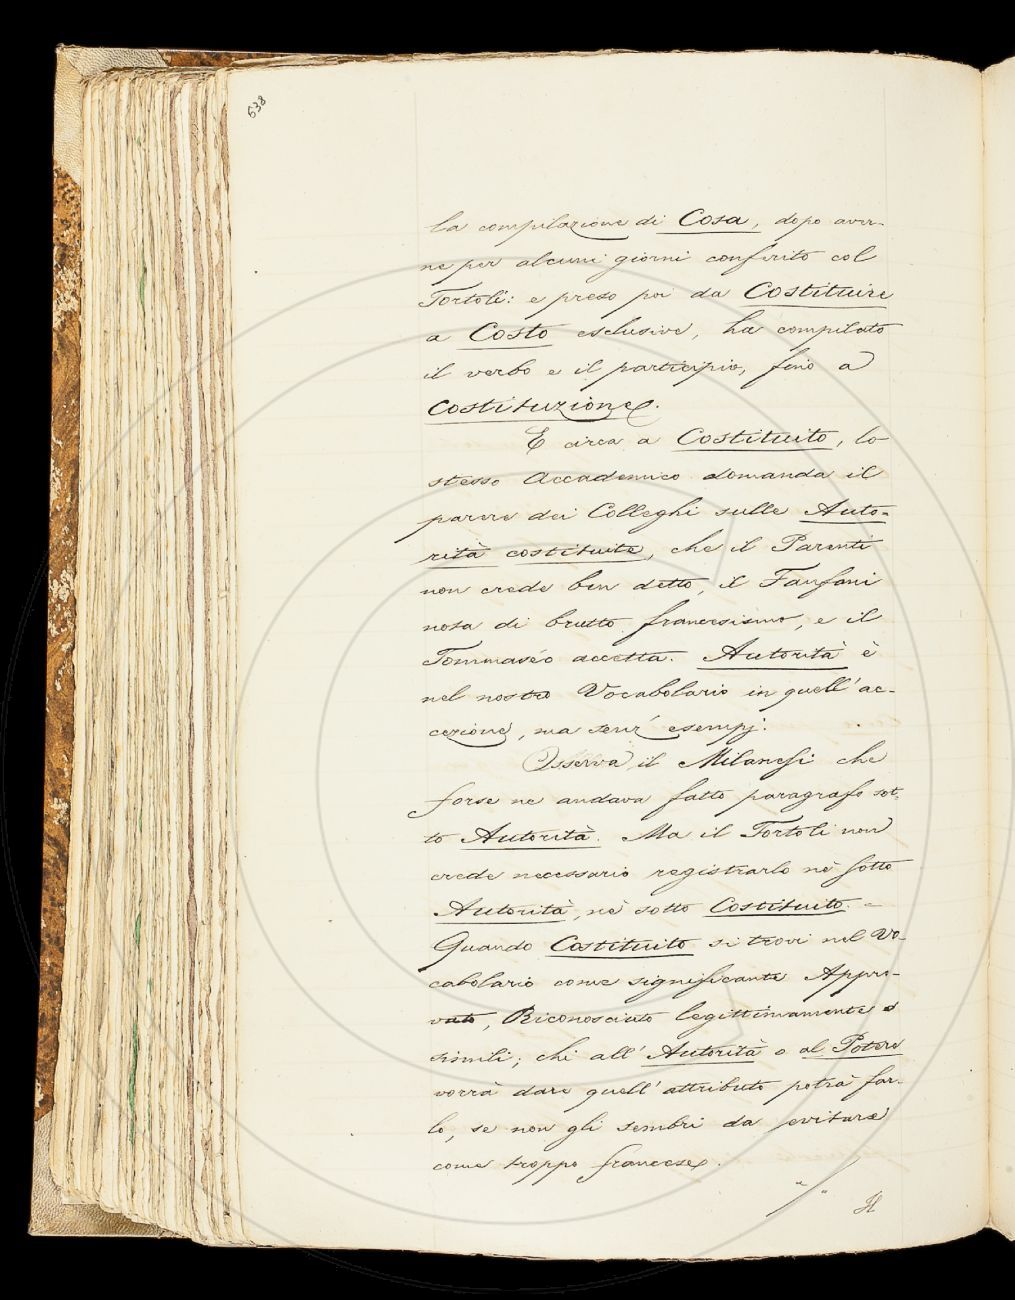 638
la compilazione di Cosa, dopo aver-
ne per alcuni giorni conferito col
Tortoli: e preso poi da Costituire
a Costo esclusive, ha compilato
il verbo e il participio, fino a
Costituzione.
E circa a Costituito, lo
stesso Accademico domanda il
parere dei Colleghi sulle Auto-
rità costituite, che il Parenti
non crede ben detto, il Fanfani
nota di brutto francesismo, e il
Tommaséo accetta. Autorità è
nel nostro Vocabolario in quell'ac-
cezione, ma senz'esempj.
Osserva il Milanesi che
forse ne andava fatto paragrafo sot-
to Autorità. Ma il Tortoli non
crede necessario registrarlo nè sotto
Autorità, nè sotto Costituito.
Quando Costituito si trovi nel Vo-
cabolario come significante Appro-
vato, Riconosciuto legittimamente e
simili; chi all'Autorità o al Potere
vorrà dare quell'attributo potrà far-
lo, se non gli sembri da evitare
come troppo francese.
Il